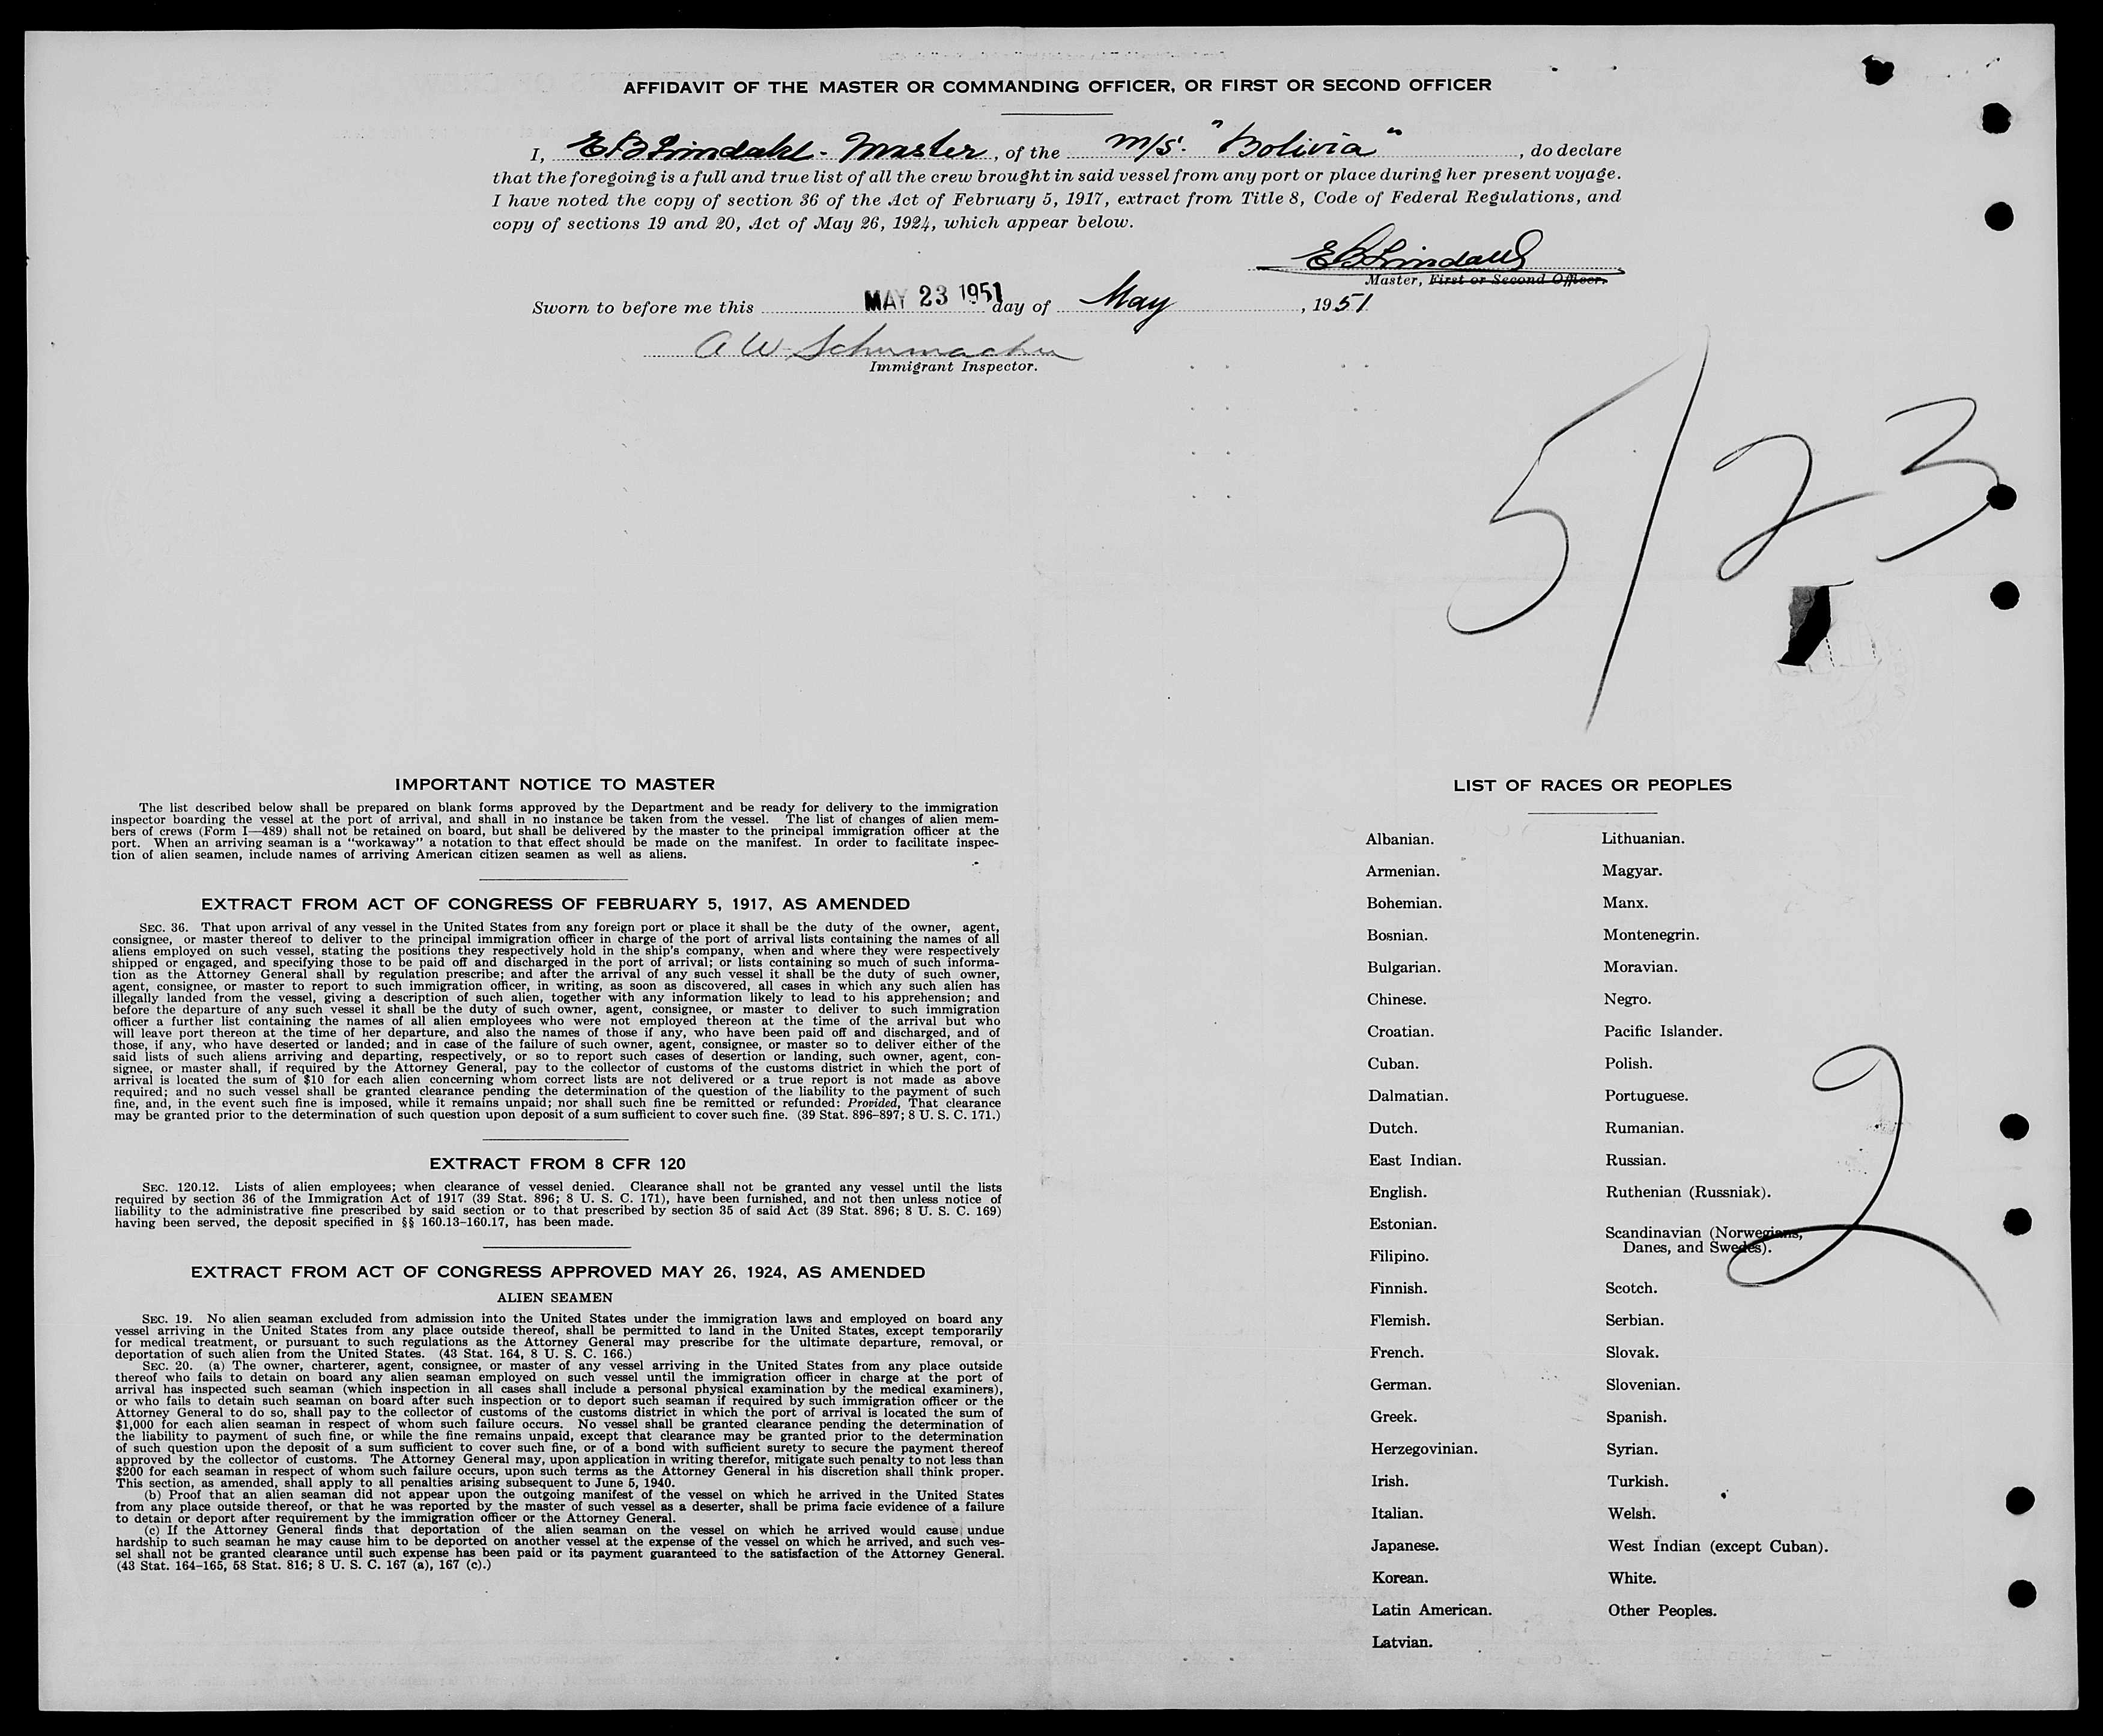 AFFIDAVIT OF THE MASTER OR COMMANDING OFFICER, OR FIRST OR SECOND OFFICER
I, E B Lindahl - Master, of the m/s. "Bolivia", do declare
that the foregoing is a full and true list of all the crew brought in said vessel from any port or place during her present voyage.
I have noted the copy of section 36 of the Act of February 5, 1917, extract from Title 8, Code of Federal Regulations, and
copy of sections 19 and 20, Act of May 26, 1924, which appear below.
E B Lindahl
Master, First or Second Officer.
Sworn to before me this MAY 23 1951 day of May, 1951
A W Schumacher
Immigrant Inspector.
5/23
IMPORTANT NOTICE TO MASTER
The list described below shall be prepared on blank forms approved by the Department and be ready for delivery to the immigration
inspector boarding the vessel at the port of arrival, and shall in no instance be taken from the vessel. The list of changes of alien mem-
bers of crews (Form I—489) shall not be retained on board, but shall be delivered by the master to the principal immigration officer at the
port. When an arriving seaman is a "workaway" a notation to that effect should be made on the manifest. In order to facilitate inspec-
tion of alien seamen, include names of arriving American citizen seamen as well as aliens.
EXTRACT FROM ACT OF CONGRESS OF FEBRUARY 5, 1917, AS AMENDED
SEC. 36. That upon arrival of any vessel in the United States from any foreign port or place it shall be the duty of the owner, agent,
consignee, or master thereof to deliver to the principal immigration officer in charge of the port of arrival lists containing the names of all
aliens employed on such vessel, stating the positions they respectively hold in the ship's company, when and where they were respectively
shipped or engaged, and specifying those to be paid off and discharged in the port of arrival; or lists containing so much of such informa-
tion as the Attorney General shall by regulation prescribe; and after the arrival of any such vessel it shall be the duty of such owner,
agent, consignee, or master to report to such immigration officer, in writing, as soon as discovered, all cases in which any such alien has
illegally landed from the vessel, giving a description of such alien, together with any information likely to lead to his apprehension; and
before the departure of any such vessel it shall be the duty of such owner, agent, consignee, or master to deliver to such immigration
officer a further list containing the names of all alien employees who were not employed thereon at the time of the arrival but who
will leave port thereon at the time of her departure, and also the names of those if any, who have been paid off and discharged, and of
those, if any, who have deserted or landed; and in case of the failure of such owner, agent, consignee, or master so to deliver either of the
said lists of such aliens arriving and departing, respectively, or so to report such cases of desertion or landing, such owner, agent, con-
signee, or master shall, if required by the Attorney General, pay to the collector of customs of the customs district in which the port of
arrival is located the sum of $10 for each alien concerning whom correct lists are not delivered or a true report is not made as above
required; and no such vessel shall be granted clearance pending the determination of the question of the liability to the payment of such
fine, and, in the event such fine is imposed, while it remains unpaid; nor shall such fine be remitted or refunded: Provided, That clearance
may be granted prior to the determination of such question upon deposit of a sum sufficient to cover such fine. (39 Stat. 896-897; 8 U. S. C. 171.)
EXTRACT FROM 8 CFR 120
SEC. 120.12. Lists of alien employees; when clearance of vessel denied. Clearance shall not be granted any vessel until the lists
required by section 36 of the Immigration Act of 1917 (39 Stat. 896; 8 U. S. C. 171), have been furnished, and not then unless notice of
liability to the administrative fine prescribed by said section or to that prescribed by section 35 of said Act (39 Stat. 896; 8 U. S. C. 169)
having been served, the deposit specified in §§ 160.13-160.17, has been made.
EXTRACT FROM ACT OF CONGRESS APPROVED MAY 26, 1924, AS AMENDED
ALIEN SEAMEN
SEC. 19. No alien seaman excluded from admission into the United States under the immigration laws and employed on board any
vessel arriving in the United States from any place outside thereof, shall be permitted to land in the United States, except temporarily
for medical treatment, or pursuant to such regulations as the Attorney General may prescribe for the ultimate departure, removal, or
deportation of such alien from the United States. (43 Stat. 164, 8 U. S. C. 166.)
SEC. 20. (a) The owner, charterer, agent, consignee, or master of any vessel arriving in the United States from any place outside
thereof who fails to detain on board any alien seaman employed on such vessel until the immigration officer in charge at the port of
arrival has inspected such seaman (which inspection in all cases shall include a personal physical examination by the medical examiners),
or who fails to detain such seaman on board after such inspection or to deport such seaman if required by such immigration officer or the
Attorney General to do so, shall pay to the collector of customs of the customs district in which the port of arrival is located the sum of
$1,000 for each alien seaman in respect of whom such failure occurs. No vessel shall be granted clearance pending the determination of
the liability to payment of such fine, or while the fine remains unpaid, except that clearance may be granted prior to the determination
of such question upon the deposit of a sum sufficient to cover such fine, or of a bond with sufficient surety to secure the payment thereof
approved by the collector of customs. The Attorney General may, upon application in writing therefor, mitigate such penalty to not less than
$200 for each seaman in respect of whom such failure occurs, upon such terms as the Attorney General in his discretion shall think proper.
This section, as amended, shall apply to all penalties arising subsequent to June 5, 1940.
(b) Proof that an alien seaman did not appear upon the outgoing manifest of the vessel on which he arrived in the United States
from any place outside thereof, or that he was reported by the master of such vessel as a deserter, shall be prima facie evidence of a failure
to detain or deport after requirement by the immigration officer or the Attorney General.
(c) If the Attorney General finds that deportation of the alien seaman on the vessel on which he arrived would cause undue
hardship to such seaman he may cause him to be deported on another vessel at the expense of the vessel on which he arrived, and such ves-
sel shall not be granted clearance until such expense has been paid or its payment guaranteed to the satisfaction of the Attorney General.
(43 Stat. 164-165, 58 Stat. 816; 8 U. S. C. 167 (a), 167 (c).)
LIST OF RACES OR PEOPLES
Albanian.
Armenian.
Bohemian.
Bosnian.
Bulgarian.
Chinese.
Croatian.
Cuban.
Dalmatian.
Dutch.
East Indian.
English.
Estonian.
Filipino.
Finnish.
Flemish.
French.
German.
Greek.
Herzegovinian.
Irish.
Italian.
Japanese.
Korean.
Latin American.
Latvian.
Lithuanian.
Magyar.
Manx.
Montenegrin.
Moravian.
Negro.
Pacific Islander.
Polish.
Portuguese.
Rumanian.
Russian.
Ruthenian (Russniak).
Scandinavian (Norwegians,
Danes, and Swedes).
Scotch.
Serbian.
Slovak.
Slovenian.
Spanish.
Syrian.
Turkish.
Welsh.
West Indian (except Cuban).
White.
Other Peoples.
2